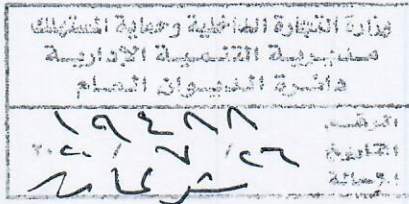 وزارة التجارة الداخلية وحماية المستهلك
مديرية التنمية الادارية
دائرة الديوان العام
الرقم ١٩٤٨٨
التاريخ / ٧ /
الإحالة